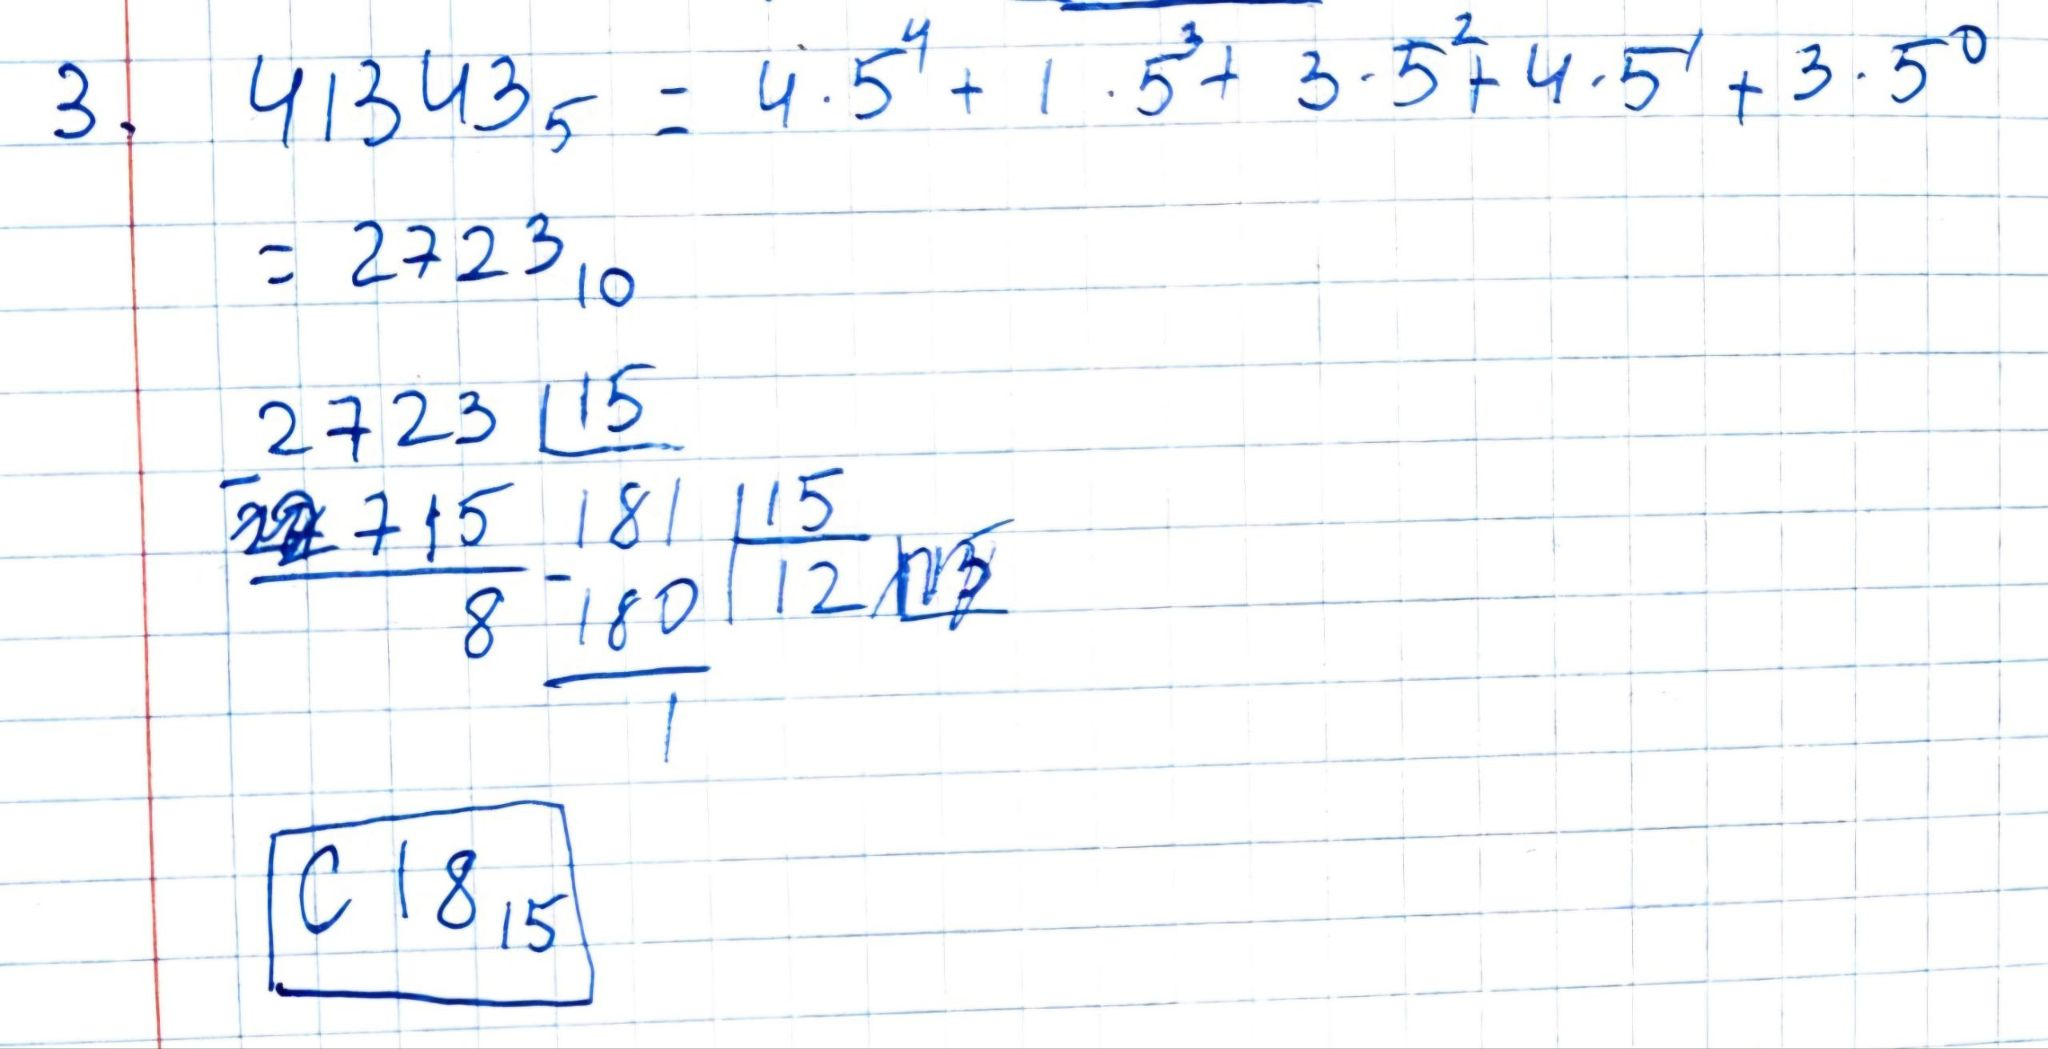 3. 41343₅ = 4·5⁴ + 1·5³ + 3·5² + 4·5¹ + 3·5⁰
= 2723₁₀
2723 15
- 2715 181 15
8 - 180 12
1
C18₁₅